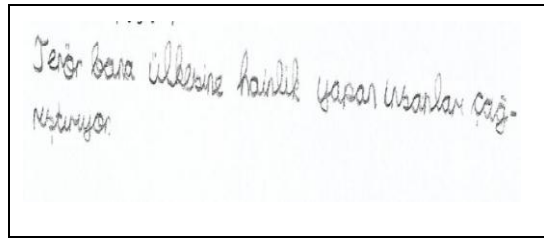 Terör bana ülkesine hainlik yapan insanlar çağ-
rıştırıyor.